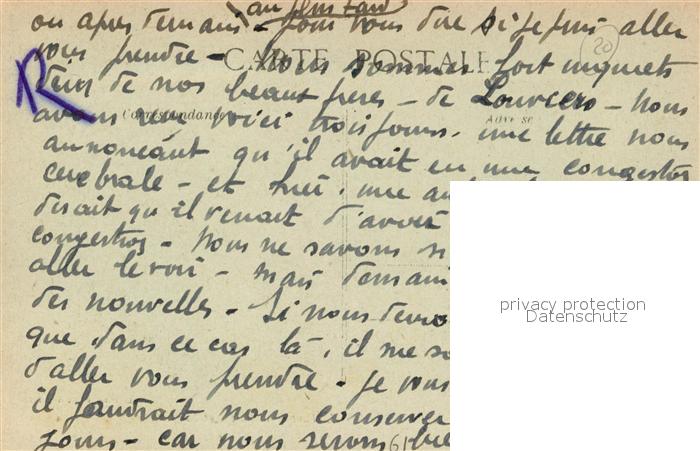 au plus tard
ou après demain - pour vous dire si je puis aller
vous prendre - Nous sommes fort inquiets
CARTE POSTALE
20
d'un de nos beaux frères - de Louviers - Nous
Correspondance
Adresse
avons reçu voici trois jours, une lettre nous
annonçant qu'il avait eu une congestion
cérébrale - et hier, une au
disait qu'il venait d'avoir
congestion - Nous ne savons si
aller le voir - mais demain
des nouvelles - Si nous devo
que dans ce cas là, il me se
d'aller vous prendre - je vous
il faudrait nous conserver
jours - car nous serons bie
61
privacy protection
Datenschutz